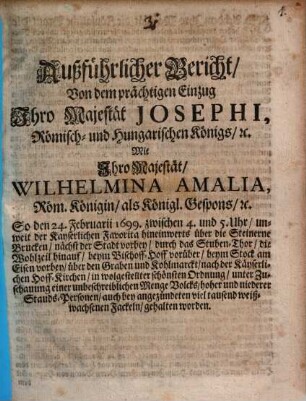 Außführlicher Bericht/
Von dem prächtigen Einzug
Ihro Majestät JOSEPHI,
Römisch- und Hungarischen Königs/ ꝛc.
Wie
Ihro Majestät/
WILHELMINA AMALIA,
Röm. Königin/ als Königl. Gespons/ ꝛc.
So den 24. Februarii 1699. zwischen 4. und 5. Uhr/ un-
weit der Kayserlichen Favorita hineinwerts über die Steinerne
Brucken/ nächst der Stadt vorbey/ durch das Stuben-Thor/ die
Wohlzeil hinauf/ beym Bischoff-Hoff vorüber/ beym Stock am
Eisen vorbey/ über den Graben und Kohlmarckt/ nach der Käyserli-
chen Hoff-Kirchen/ in wolgestelter schönsten Ordnung/ unter Zu-
schauung einer unbeschreiblichen Menge Volcks/ hoher und niederer
Stands-Personen/ auch bey angezündeten viel tausend weiß-
wachsenen Fackeln/ gehalten worden.